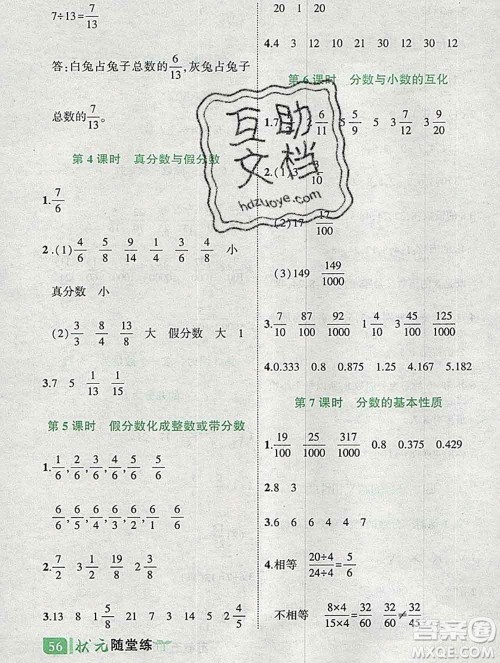 7÷13=7/13
答:白兔占兔子总数的6/13,灰兔占兔子
总数的7/13。
第 4 课时 真分数与假分数
1.7/6
2.(1)4/6 5/6 1/4 3/4 1/6 小
真分数 小
(2)3/3 8/4 13/8 大 假分数 大 1
3.7 5 1/13 13/13
第 5 课时 假分数化成整数或带分数
1.1/6,2/6,3/6,4/6,5/6
6/6,7/6,8/6,9/6,10/6
2.7/2 3 1/2 19/8 2 3/8
3.13 8 11 21 7 9 2 4/5
56 状元随堂练
20 1 20
4.4 7 11 30 20 12 30
第 6 课时 分数与小数的互化
1.7 6/11 5 3 3/8 3 9/20
2.(1)3 3/10
(2)17 17/100
(3)149 149/1000
3.7/10 87/100 87/1000 1 3/100 45/100 1125/1000
4.0.333 1.8 0.875 4.167 5.182
第 7 课时 分数的基本性质
1.19/100 25/1000 317/1000 0.8 0.375 0.429
2.8 3
3.6 4 10 12 18 5
4.相等 20÷4/24÷4=5/6
不相等 8×4/15×4=32/60 32/60≠42/60
互助
文档
hdzuoye.com
作业帮
MXQE.COM